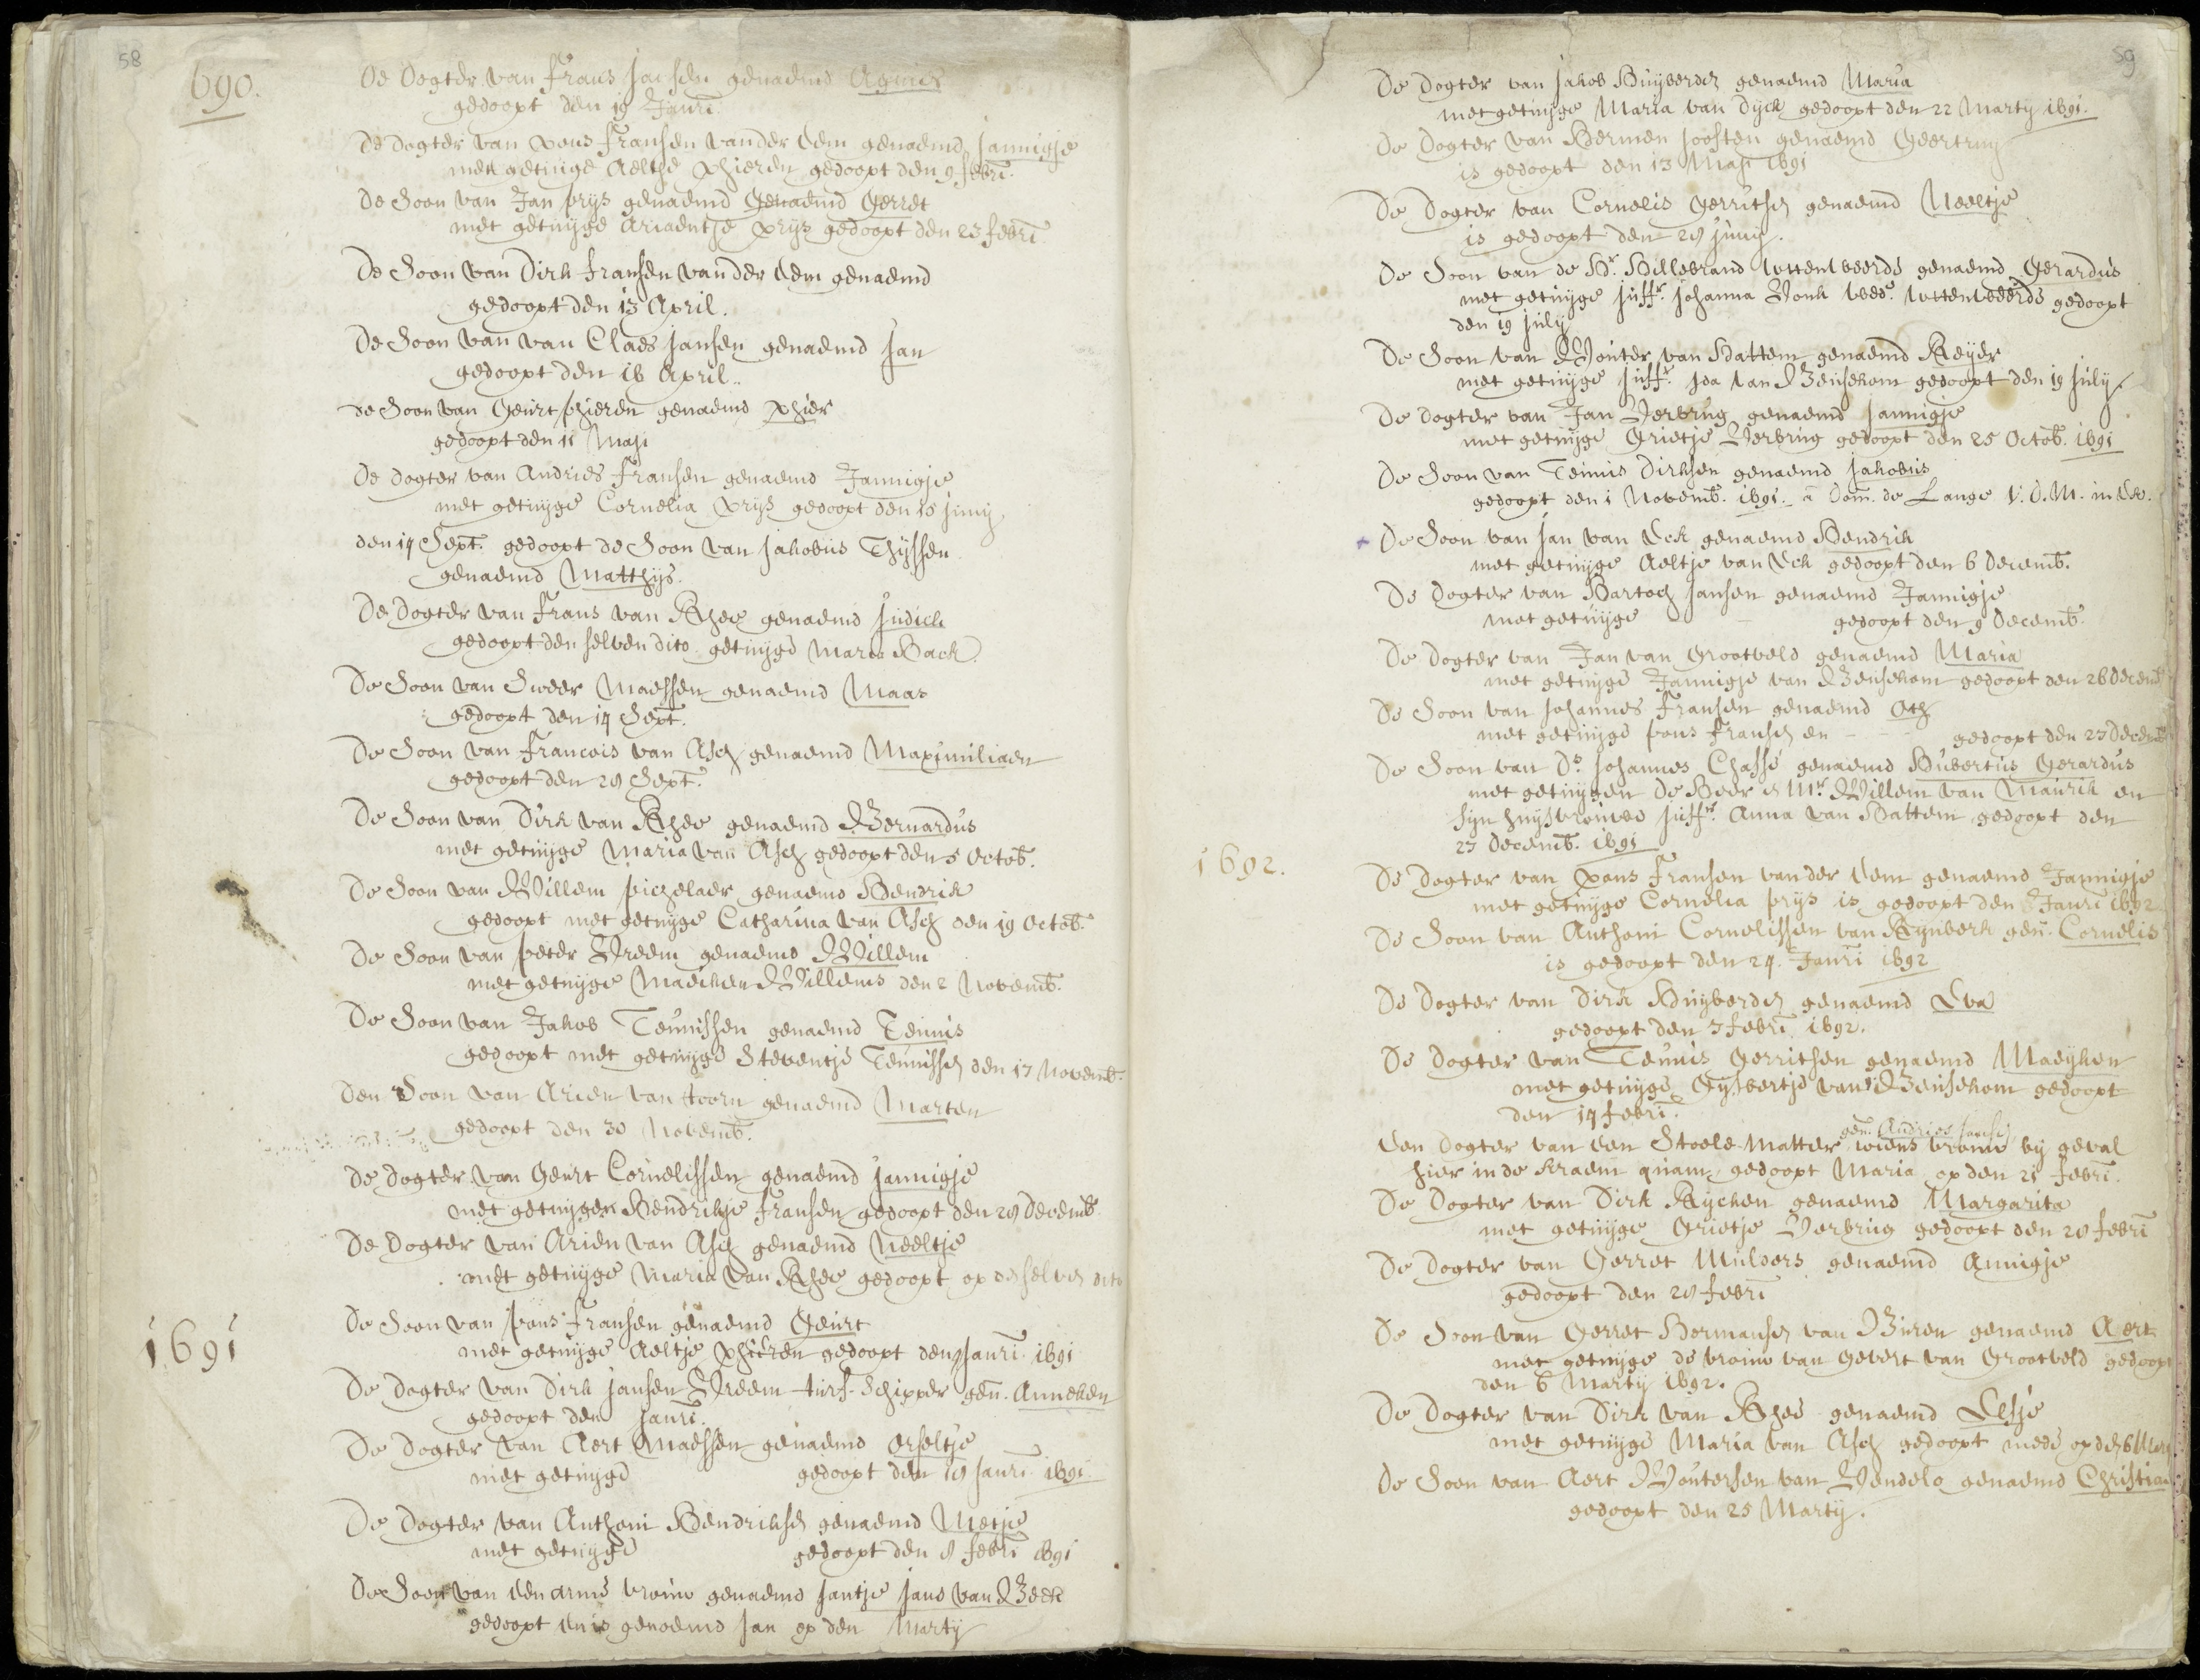 58
690.
De Dogter van Frans Jansen genaemd Agnies
gedoopt den 19 Janri
De Dogter van Pons Fransen vander Eem genaemd Jannigje
met getuijge Aeltje Phieren gedoopt den 9 febri.
De Soon van Jan prijs genaemd Genaemd Gerret
met getuijge Ariaentje prijs gedoopt den 23 febri
De Soon van Dirk Fransen vander Eem genaemd
gedoopt den 13 April.
De Soon van van Claes Jansen genaemd Jan
gedoopt den 16 April.
de Soon van Geurt phieren genaemd Phier
gedoopt den 11 Maji
De dogter van Andries Fransen genaemd Jannigje
met getuijge Cornelia Prijs gedoopt den 15 Junij
den 14 Sept. gedoopt de Soon van Jakobus Thijssen
genaemd Matthijs.
De Dogter van Frans van Rhee genaemd Judick
gedoopt den selven dito getuijge Maria Back.
De Soon van Sweer Maessen genaemd Maas
gedoopt den 14 Sept.
De Soon van Francois van Asch genaemd Maximiliaen
gedoopt den 28 Sept.
De Soon van Dirk van Rhee genaemd Bernardus
met getuijge Maria van Asch gedoopt den 5 Octob.
De Soon van Willem pichelaer genaemd Hendrik
gedoopt met getuijge Catharina van Asch den 19 Octob.
De Soon van peter Vreem genaemd Willem
met getuijge Maeiken Willems den 2 Novemb.
De Soon van Jakob Teunissen genaemd Teunis
gedoopt met getuijge Steventje Teunissen den 17 Novemb.
Den Soon van Arien van toorn genaemd Marten
gedoopt den 30 Novemb.
De Dogter van Geurt Cornelissen genaemd Jannigje
met getuijgen Hendrikje Fransen gedoopt den 28 Decemb.
De Dogter van Arien van Asch genaemd Neeltje
met getuijge Maria van Rhee gedoopt op den selven dito
1691
De Soon van pons Fransen genaemd Geurt
met getuijge Aeltje Phieren gedoopt den Janri 1691
De Dogter van Dirk Jansen Vreem turf-Schipper gen. Anneken
gedoopt den Janri.
De Dogter van Aert Maessen genaemd Erseltje
met getuijge gedoopt den 18 Janri 1691.
De Dogter van Anthoni Hendriksen genaemd Metje
met getuijge gedoopt den 8 febri 1691
De Soon van een arme vrouw genaemd Jantje Jans van Beek
gedoopt en is genaemd Jan op den Martij
59
De Dogter van Jakob Huijberden genaemd Maria
met getuijge Maria van Dijck gedoopt den 22 Martij 1691.
De Dogter van Hermen Joosten genaemd Geertruij
is gedoopt den 13 Maji 1691
De Dogter van Cornelis Gerritsen genaemd Neeltje
is gedoopt den 28 Junij.
De Soon van de Hr. Hillebrand wttenweerde genaemd Gerardus
met getuijge Juffr. Johanna Vonk wed. wttenweerde gedoopt
den 19 Julij
De Soon van Wouter van Hattem genaemd Reijer
met getuijge Juffr. Ida van Beusekom gedoopt den 19 Julij.
De Dogter van Jan Verbrug genaemd Jannigje
met getuijge Grietje Verbrug gedoopt den 25 Octob. 1691
De Soon van Teunis Dirksen genaemd Jakobus
gedoopt den 1 Novemb. 1691. a Dom. de Lange V.D.M. in Eck.
De Soon van Jan van Eck genaemd Hendrik
met getuijge Aeltje van Eck gedoopt den 6 Decemb.
De Dogter van Bartoch Jansen genaemd Jannigje
met getuijge gedoopt den 9 Decemb.
De Dogter van Jan van Grootveld genaemd Maria
met getuijge Jannigje van Beusekom gedoopt den 26 Decemb
De Soon van Johannes Fransen genaemd Oth
met getuijge pons Fransen en gedoopt den 23 Decemb
De Soon van Ds Johannes Chassé genaemd Hubertus Gerardus
met getuijgen De Heer en Mr. Willem van Maurik en
sijn huijsvrouwe Juffr. Anna van Hattem gedoopt den
23 Decemb. 1691
1692.
De Dogter van Pons Fransen vander Eem genaemd Jannigje
met getuijge Cornelia prijs is gedoopt den Janri 1692
De Soon van Anthoni Cornelissen van Rijnberk gen. Cornelis
is gedoopt den 24. Janri 1692
De Dogter van Dirk Huijberden genaemd Eva
gedoopt den 3 febri 1692.
De Dogter van Teunis Gerritsen genaemd Maeijken
met getuijge Gijsbertje van Beusekom gedoopt
den 14 febri.
gen. Andries Jansen
Een Dogter van een Stoele-matter wiens vrouw bij geval
hier in de kraem quam, gedoopt Maria op den 21 febri.
De Dogter van Dirk Rijcken genaemd Margarita
met getuijge Grietje Verbrug gedoopt den 28 febri
De Dogter van Gerret Mulders genaemd Annigje
gedoopt den 28 febri
De Soon van Gerret Hermansen van Buren genaemd Aert
met getuijge de vrouw van Gevert van Grootveld gedoopt
den 6 Martij 1692.
De Dogter van Dirk van Rhee genaemd Elsje
met getuijge Maria van Asch gedoopt mede op den 6 Mart
De Soon van Aert Woutersen van Vendelo genaemd Christiaen
gedoopt den 25 Martij.